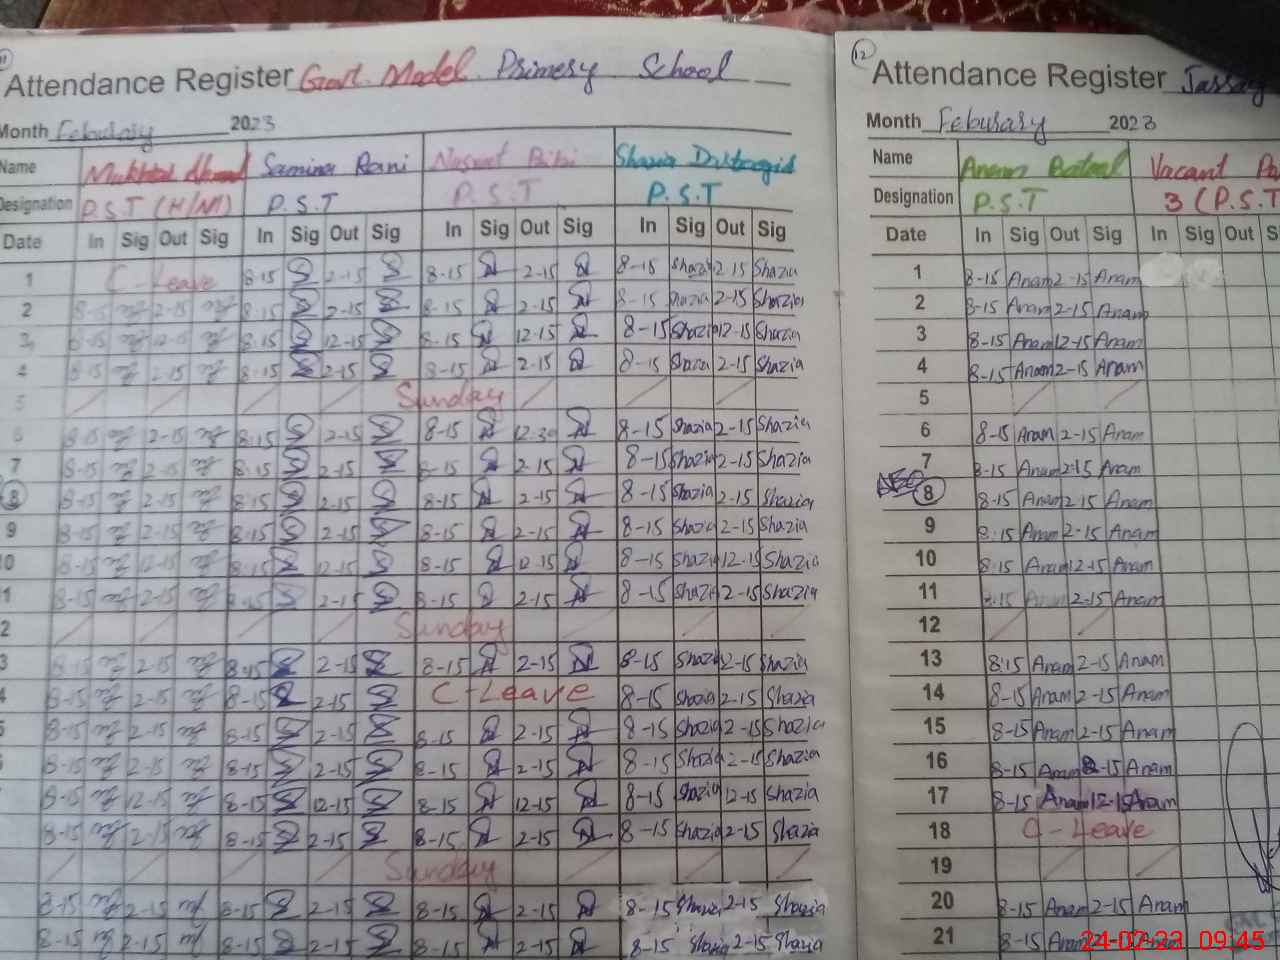 11
Attendance Register Govt. Model Primesy School
Month Feburaiy 2023
Name Mukhtar Ahmad Samina Rani Nusrat Bibi Shazia Dastagir
Designation P.S.T (H/M) P.S.T P.S.T P.S.T
Date In Sig Out Sig In Sig Out Sig In Sig Out Sig In Sig Out Sig
1 C-Leave 8-15 2-15 8-15 2-15 8-15 Shazia 2-15 Shazia
2 8-15 2-15 8-15 2-15 8-15 2-15 8-15 Shazia 2-15 Shazia
3 8-15 12-15 8-15 12-15 8-15 12-15 8-15 Shazia 12-15 Shazia
4 8-15 2-15 8-15 2-15 8-15 2-15 8-15 Shazia 2-15 Shazia
5 Sunday
6 8-15 2-15 8-15 2-15 8-15 12-30 8-15 Shazia 2-15 Shazia
7 8-15 2-15 8-15 2-15 8-15 2-15 8-15 Shazia 2-15 Shazia
8 8-15 2-15 8-15 2-15 8-15 2-15 8-15 Shazia 2-15 Shazia
9 8-15 2-15 8-15 2-15 8-15 2-15 8-15 Shazia 2-15 Shazia
10 8-15 12-15 8-15 12-15 8-15 12-15 8-15 Shazia 12-15 Shazia
1 8-15 2-15 8-15 2-15 8-15 2-15 8-15 Shazia 2-15 Shazia
2 Sunday
3 8-15 2-15 8-15 2-15 8-15 2-15 8-15 Shazia 2-15 Shazia
4 8-15 2-15 8-15 2-15 C-Leave 8-15 Shazia 2-15 Shazia
5 8-15 2-15 8-15 2-15 8-15 2-15 8-15 Shazia 2-15 Shazia
8-15 2-15 8-15 2-15 8-15 2-15 8-15 Shazia 2-15 Shazia
8-15 12-15 8-15 12-15 8-15 12-15 8-15 Shazia 12-15 Shazia
8-15 2-15 8-15 2-15 8-15 2-15 8-15 Shazia 2-15 Shazia
Sunday
8-15 2-15 8-15 2-15 8-15 2-15 8-15 Shazia 2-15 Shazia
8-15 2-15 8-15 2-15 8-15 2-15 8-15 Shazia 2-15 Shazia
12
Attendance Register
Month Febusary 2023
Name Anam Batool Vacant
Designation P.S.T 3 (P.S.T
Date In Sig Out Sig In Sig Out S
1 8-15 Anam 2-15 Anam
2 8-15 Anam 2-15 Anam
3 8-15 Anam 12-15 Anam
4 8-15 Anam 2-15 Anam
5
6 8-15 Anam 2-15 Anam
7 8-15 Anam 2-15 Anam
8 8-15 Anam 2-15 Anam
9 8-15 Anam 2-15 Anam
10 8-15 Anam 12-15 Anam
11 8-15 Anam 2-15 Anam
12
13 8-15 Anam 2-15 Anam
14 8-15 Anam 2-15 Anam
15 8-15 Anam 2-15 Anam
16 8-15 Anam 2-15 Anam
17 8-15 Anam 12-15 Anam
18 C-Leave
19
20 8-15 Anam 2-15 Anam
21 8-15 Anam
24-02-23 09:45